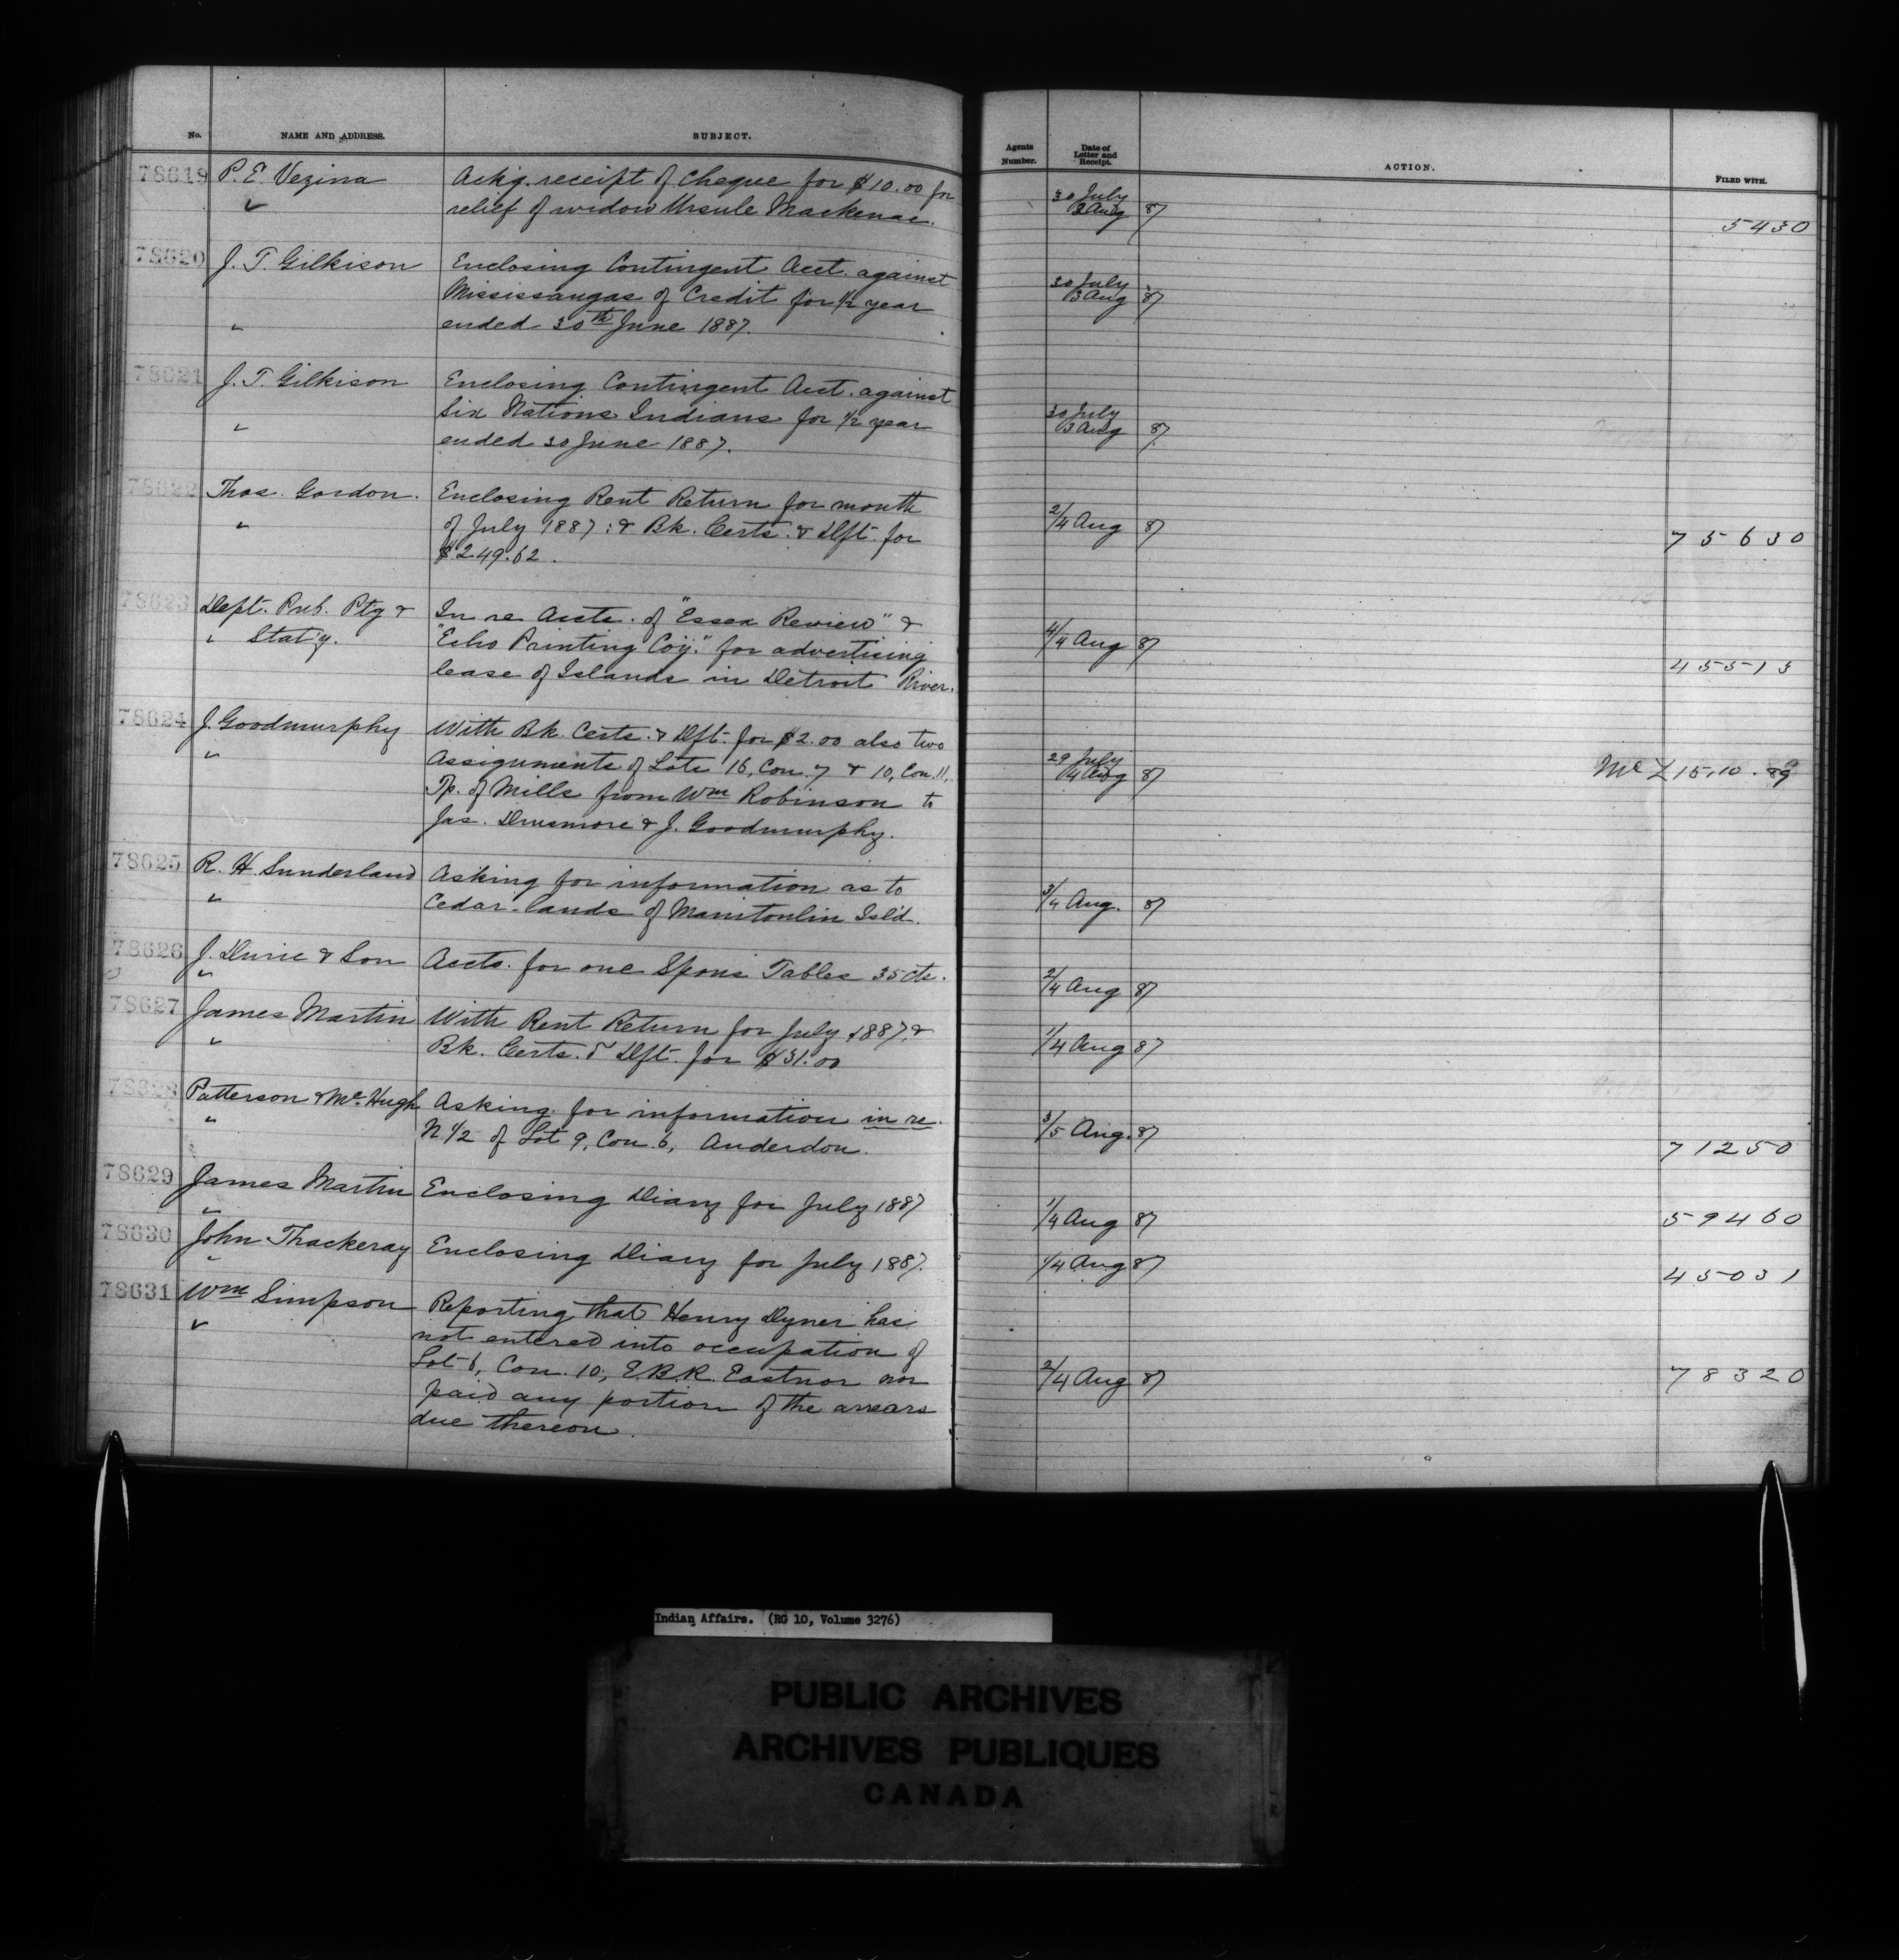 No. NAME AND ADDRESS. SUBJECT.
78619 P. E. Vezina Ackg. receipt of cheque for $10.00 for
relief of widow Ursule Mackenac.
78620 J. T. Gilkison Enclosing Contingent Acct. against
Mississaugas of Credit for 1/2 year
ended 30th June 1887.
78621 J. T. Gilkison Enclosing Contingent Acct. against
Six Nations Indians for 1/2 year
ended 30 June 1887.
78622 Thos. Gordon. Enclosing Rent Return for month
of July 1887: & Bk. Certs. & Dft. for
$249.62.
78623 Dept. Pub. Ptg & In re Accts. of "Essex Review" &
" Stat'y. "Echo Printing Co'y." for advertising
lease of Islands in Detroit River.
78624 J. Goodmurphy With Bk. Certs. & Dft. for $2.00 also two
Assignments of Lots 16, Con. 7 & 10, Con. 11,
Tp. of Mills from Wm Robinson to
Jas. Dinsmore & J. Goodmurphy.
78625 R. H. Sunderland Asking for information as to
Cedar-lands of Manitoulin Isl'd.
78626 J. Durie & Son Accts. for one Spons Tables 35 cts.
78627 James Martin With Rent Return for July 1887, &
Bk. Certs. & Dft. for $31.00
78628 Patterson & McHugh Asking for information in re.
N 1/2 of Lot 9, Con. 6, Anderdon.
78629 James Martin Enclosing Diary for July 1887
78630 John Thackeray Enclosing Diary for July 1887.
78631 Wm Simpson Reporting that Henry Dyner has
not entered into occupation of
Lot 6, Con. 10, E.B.R. Eastnor nor
paid any portion of the arrears
due thereon.
Agents Number. Date of Letter and Receipt. ACTION. FILED WITH.
30 July
3 Aug 87 5430
30 July
3 Aug 87
30 July
3 Aug 87
2/4 Aug 87 75630
4/4 Aug 87 45513
29 July
4 Aug 87 Mc L 15.10.89
3/4 Aug. 87
2/4 Aug 87
1/4 Aug 87
3/5 Aug. 87 71250
1/4 Aug 87 59460
1/4 Aug 87 45031
2/4 Aug 87 78320
Indian Affairs. (RG 10, Volume 3276)
PUBLIC ARCHIVES
ARCHIVES PUBLIQUES
CANADA